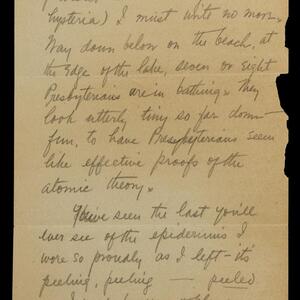 hysteria) I must write no more.
Way down below on the beach, at
the edge of the lake, seven or eight
Presbyterians are in bathing. They
look utterly tiny so far down—
fun, to have Presbyterians seem
like effective proofs of the
atomic theory.
You've seen the last you'll
ever see of the epidermis I
wore so proudly as I left—it's
peeling, peeling — peeled